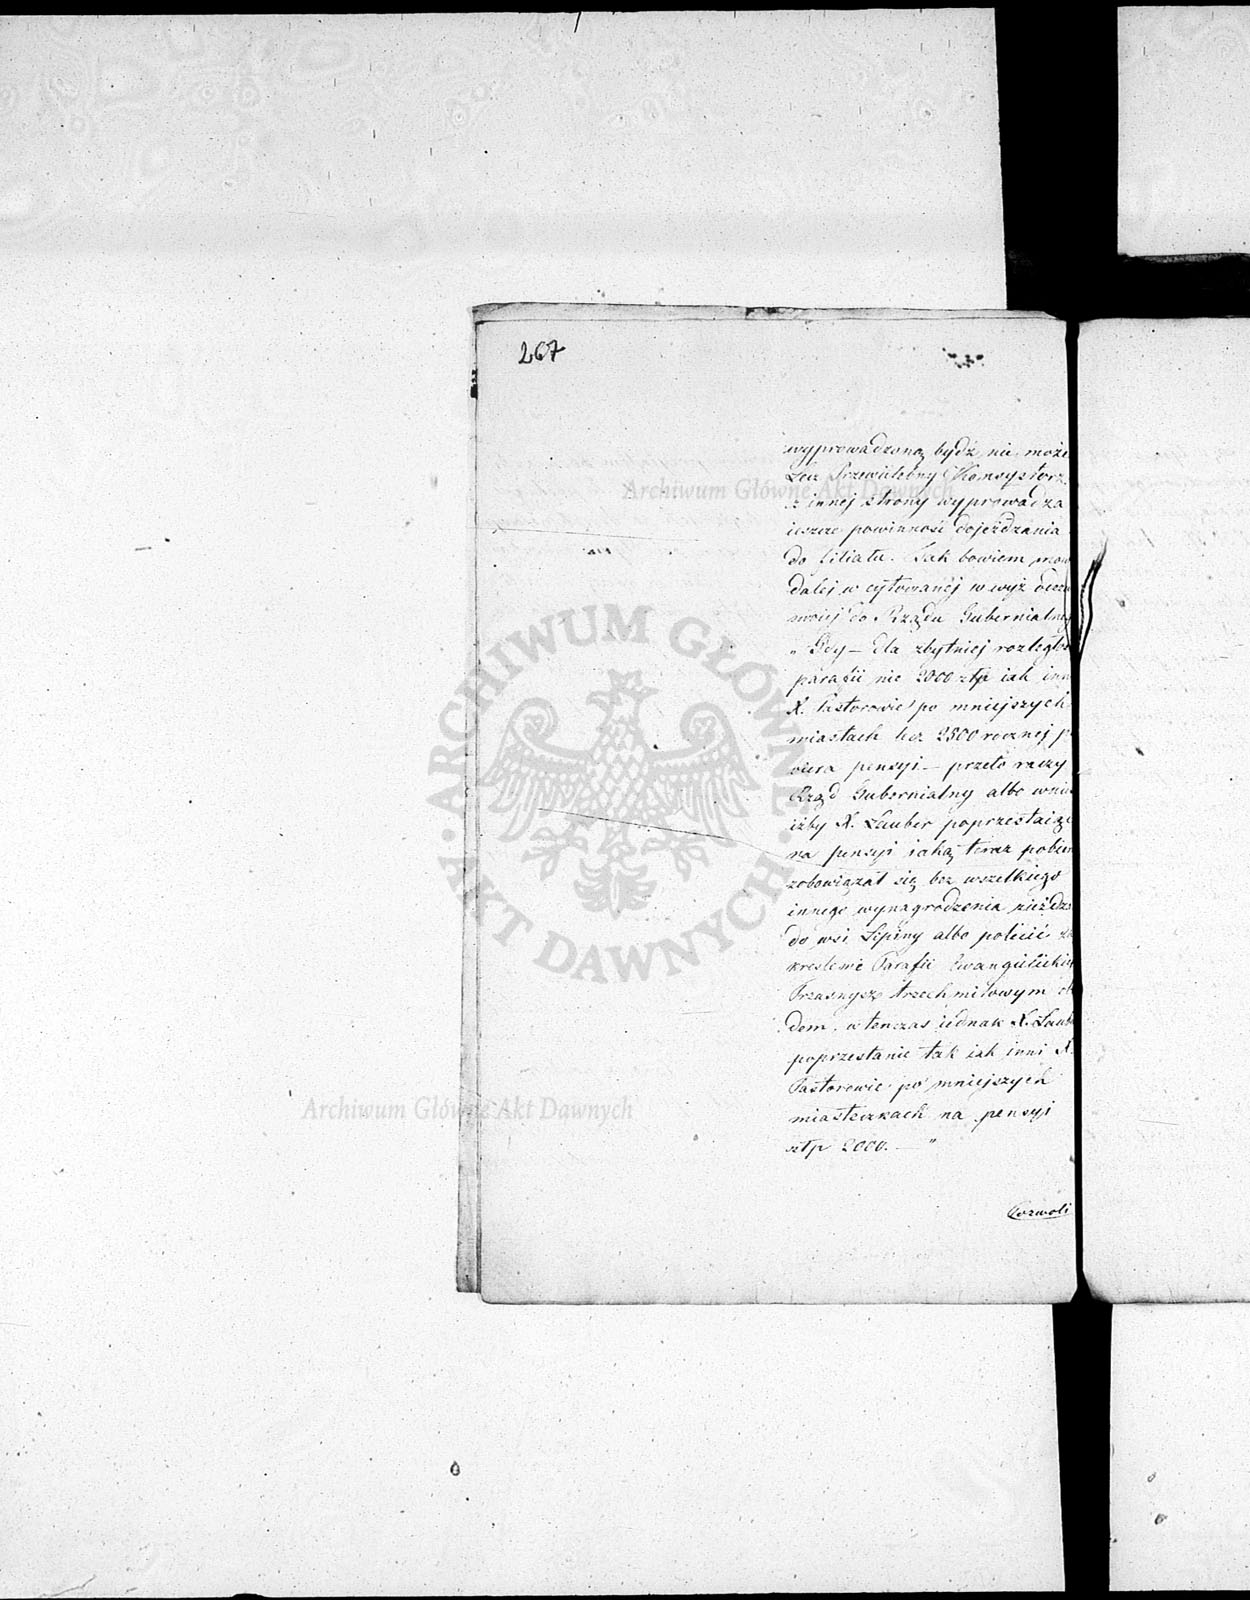 267
wyprowadzoną bydź nie może
Lecz Przewielebny Konsystorz
z innej strony wyprowadza
ieszcze powinność dojeżdzania
do filiału. Jak bowiem mow
dalej w cytowanéj w wyż odez
swoiej do Rządu Gubernialneg
„ Gdy — dla zbytniej rozległo
parafii nie 2000 złp iak inn
X. Pastorowie po mniejszych
miastach lecz 2500 rocznej p
biera pensyi — przeto raczy
Rząd Gubernialny albo wnie
iżby X. Lauber poprzestaiąc
na pensyi iaką teraz pobier
zobowiązał się bez wszelkiego
innego wynagrodzenia zieżdza
do wsi Lipiny albo polecić za
kreslenie Parafii Ewangielickiej
Przasnysz trzech milowym ob
dem, w tenczas iednak X. Laub
poprzestanie tak iak inni X.
Pastorowie po mniejszych
miasteczkach na pensyi
złp 2000. — "
Pozwoli
Archiwum Główne Akt Dawnych
ARCHIWUM GŁÓWNE AKT DAWNYCH
Archiwum Główne Akt Dawnych